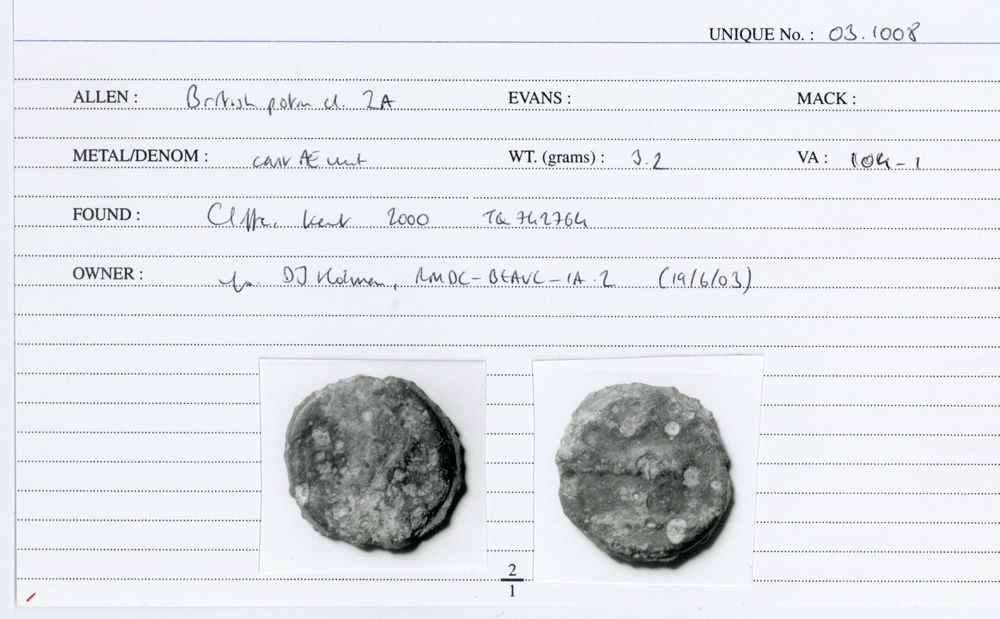 UNIQUE No. : 03.1008
ALLEN : British potin cl. 2A EVANS : MACK :
METAL/DENOM : cast Æ unit WT. (grams) : 3.2 VA : 104-1
FOUND : Cliffe, Kent 2000 TQ 742764
OWNER : DJ Holman, RMDC-BEAVC-IA.2 (19/6/03)
2
1